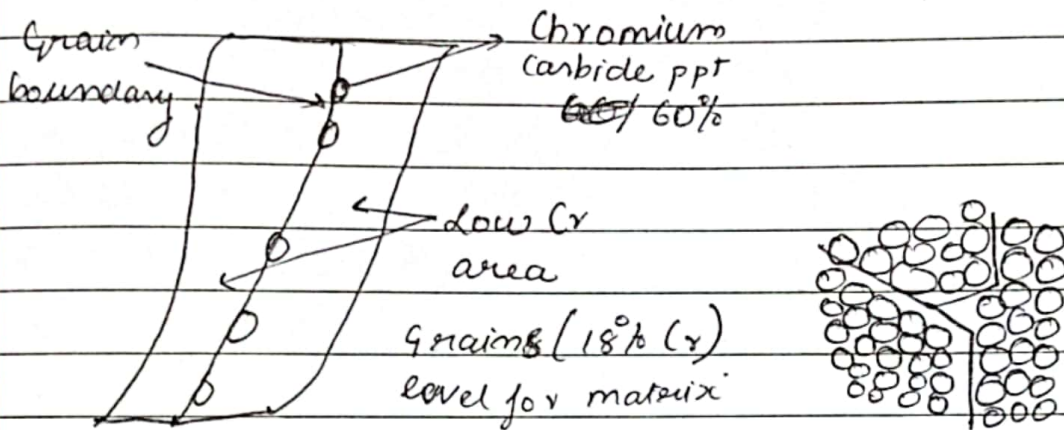 Grain
boundary
Chromium
Carbide ppt
60%
Low Cr
area
Grains (18% Cr)
level for materix